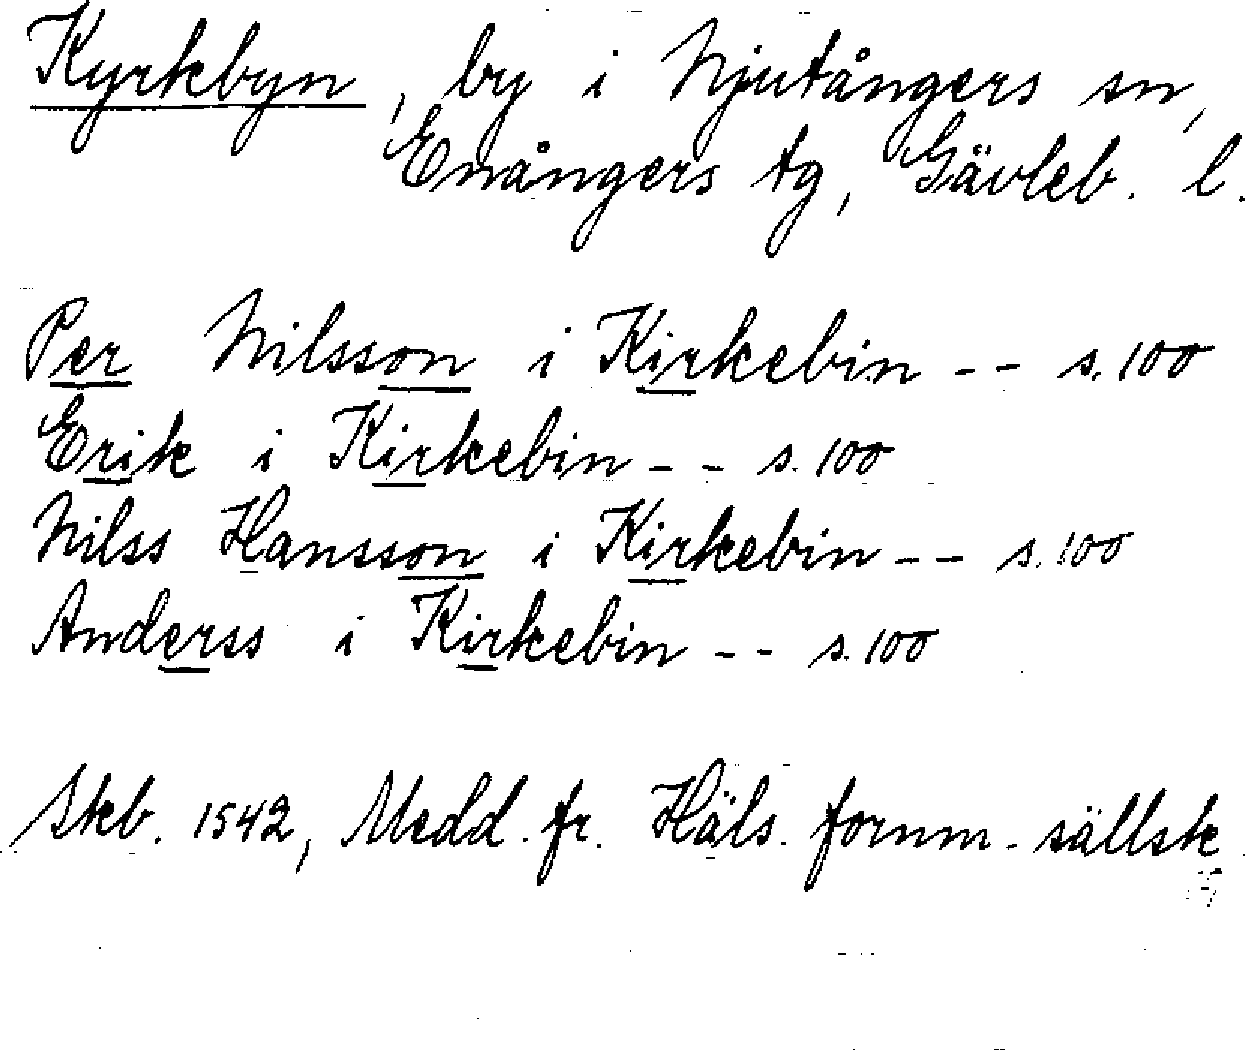 Kyrkbyn, by i Njutångers sn,
Enångers tg, Gävleb. l.
Per Nilsson i Kirkebin -- s. 100
Erik i Kirkebin -- s. 100
Nilss Hansson i Kirkebin -- s. 100
Anderss i Kirkebin -- s. 100
Skb. 1542, Medd. fr. Häls. fornm.-sällsk